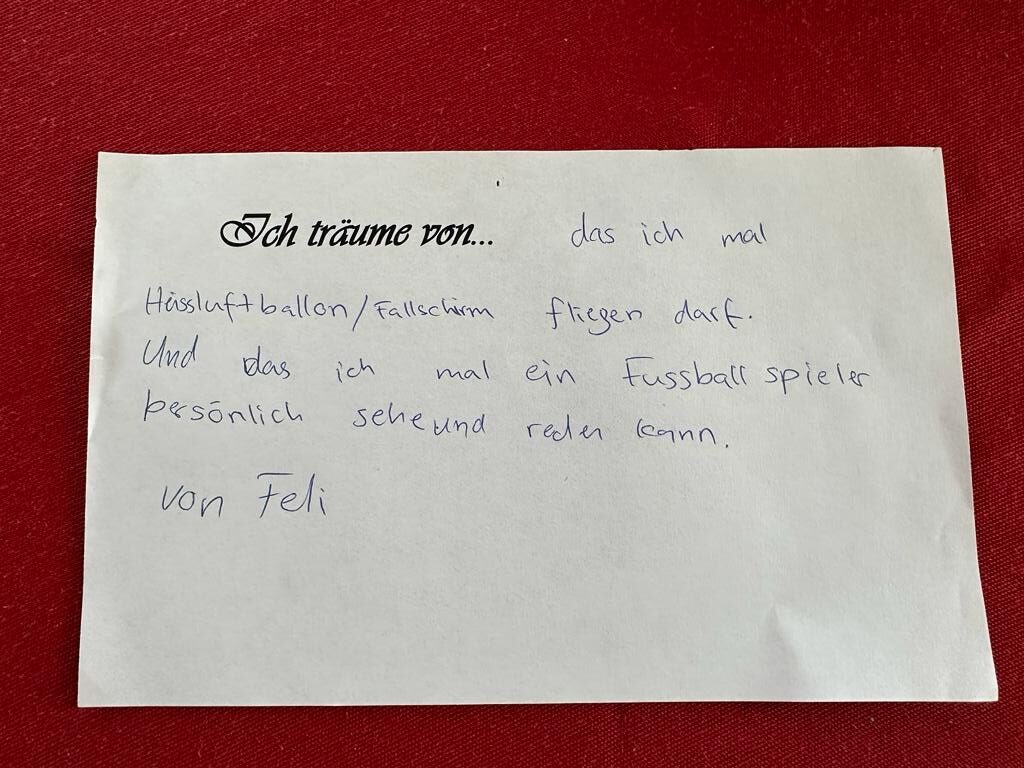 Ich träume von... das ich mal
Heissluftballon/Fallschirm fliegen darf.
Und das ich mal ein Fussballspieler
persönlich sehe und reden kann.
von Feli